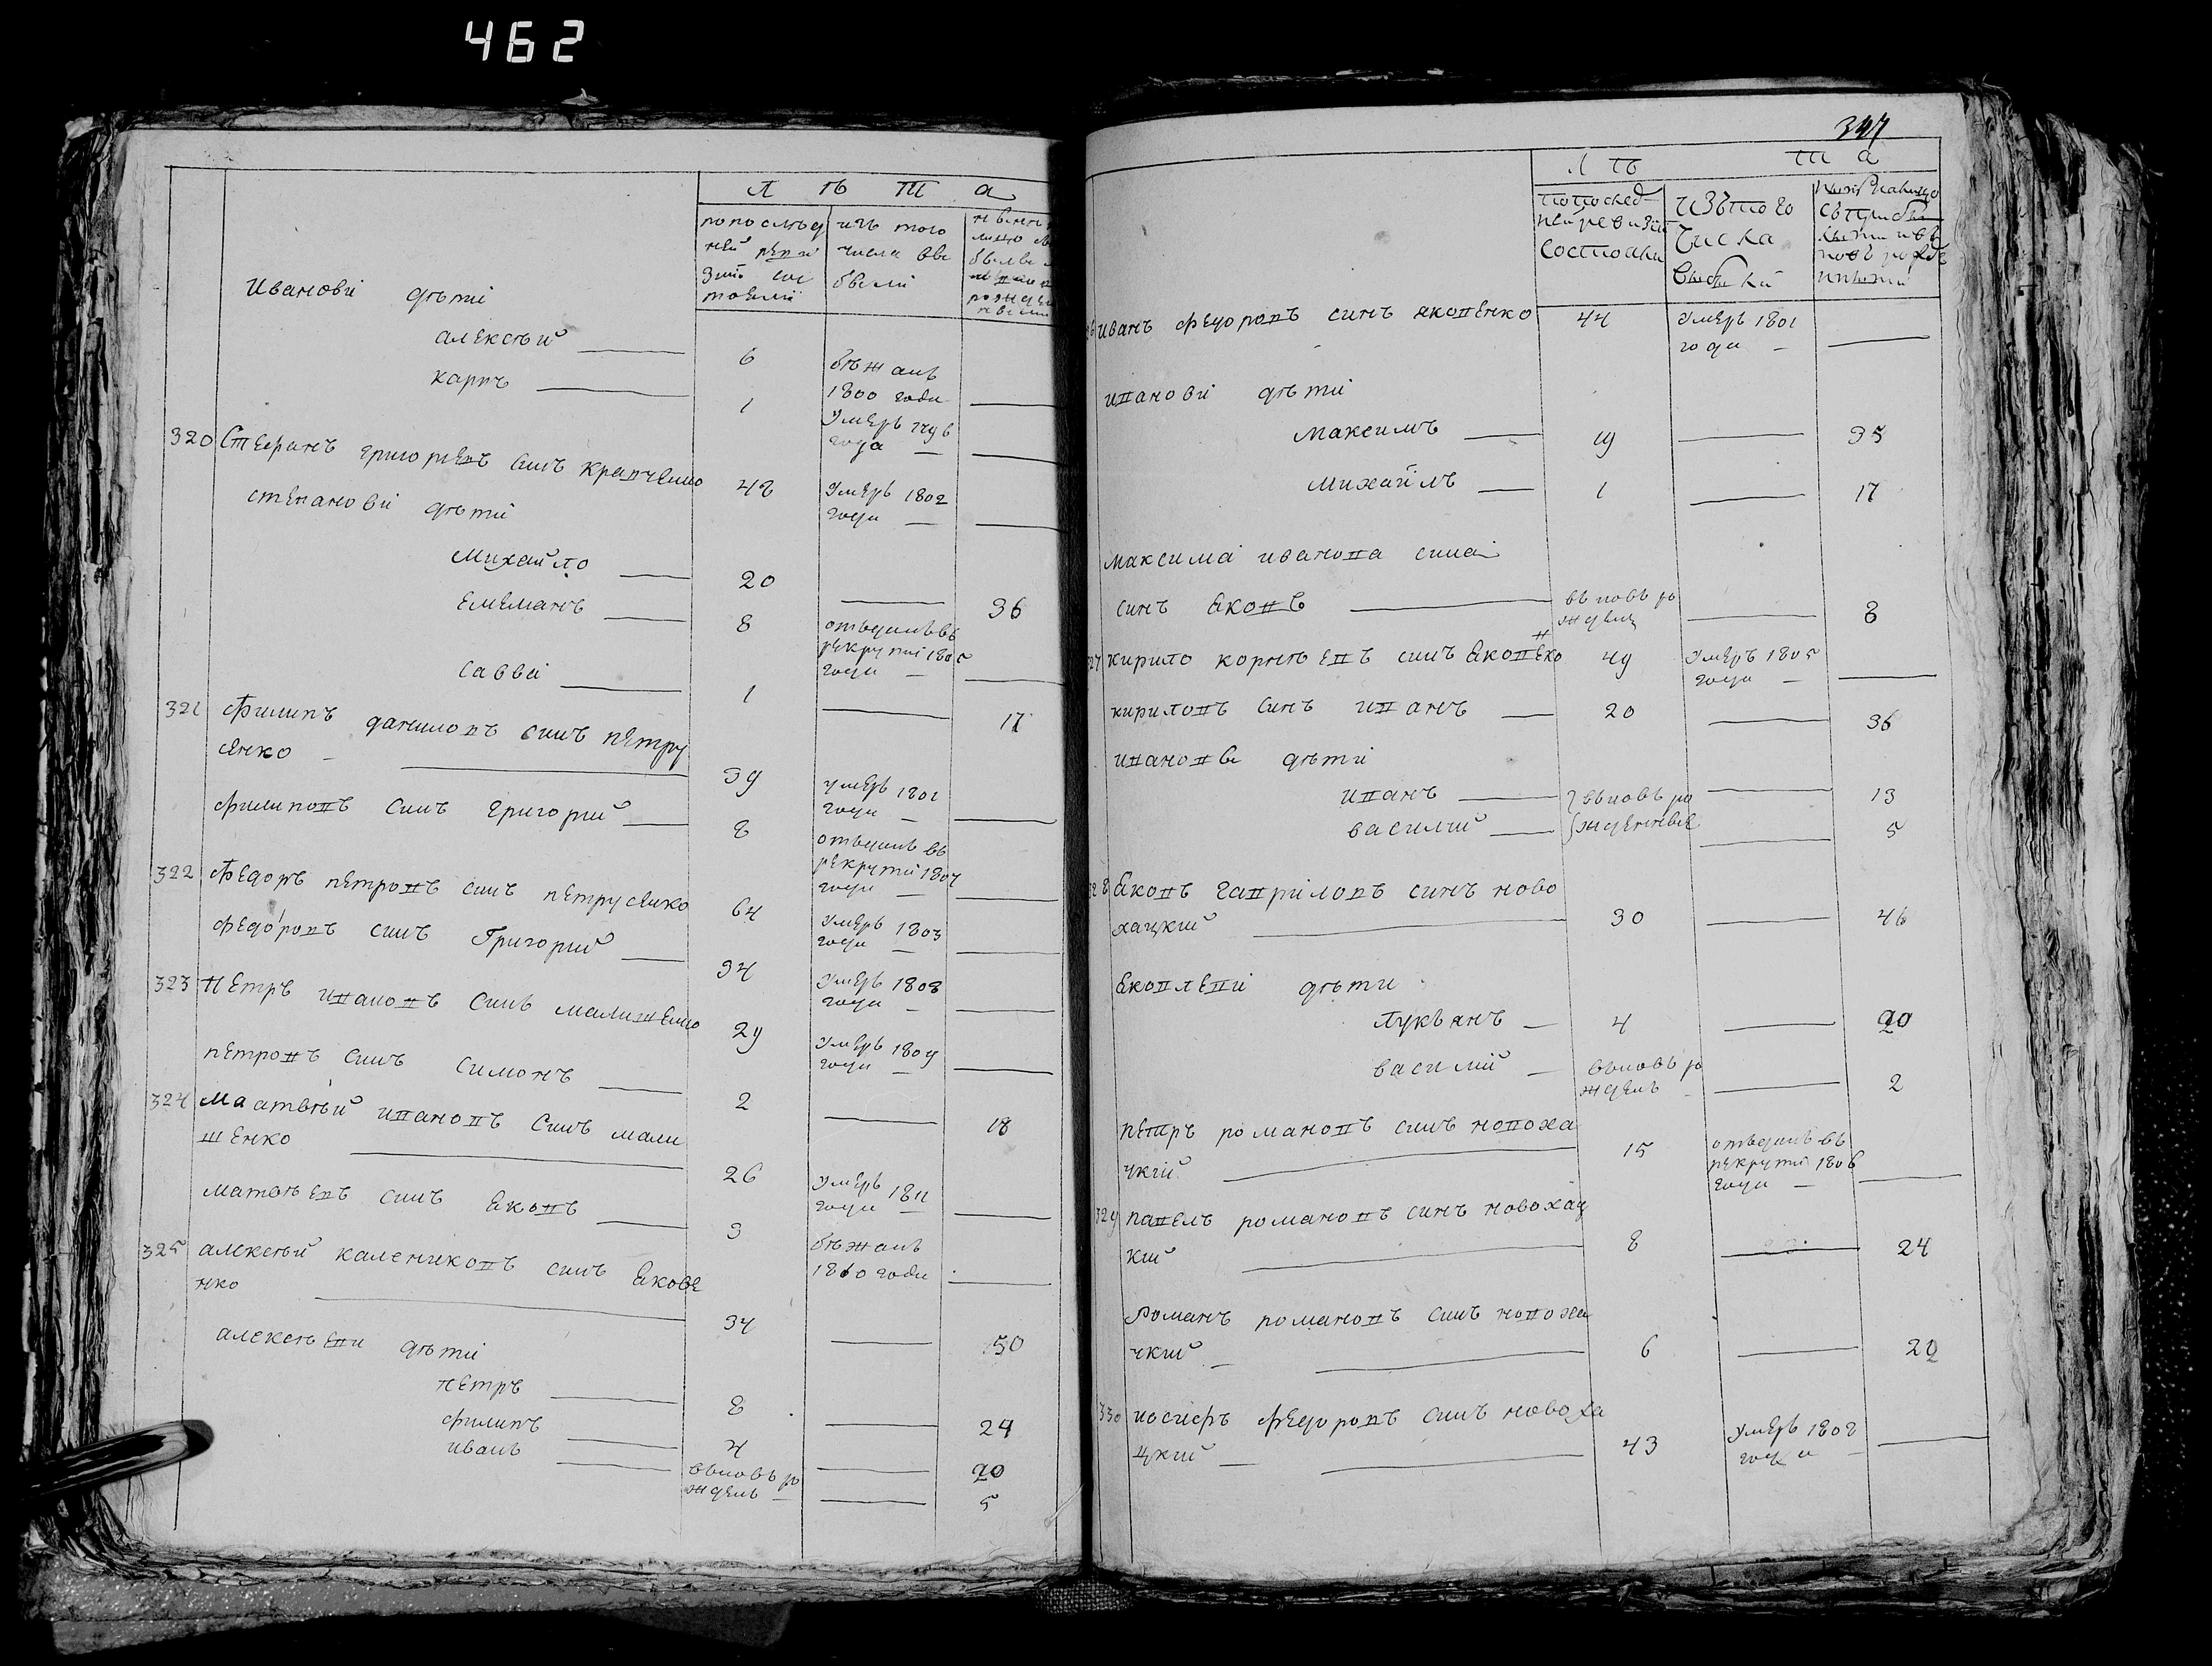 462
Л ѣ т а
по послѣд
ней реви
зіи сос
тояли
изъ того
числа вы
были
Иванови дѣти
алексѣй — 6 бѣжалъ
1800 года —
карпъ — 1 Умеръ 1796
года —
320 Степанъ григорьевъ синъ кравченко 42 Умеръ 1802
года —
степанови дѣти
Михайло — 20 — 36
Емеманъ — 8 отъданъ въ
рекруты 1805
года —
савва — 1 — 17
321 Филипъ даниловъ синъ петру
сенко — 39 умеръ 1801
года —
филиповъ синъ григорий — 8 отъданъ въ
рекруты 1807
года —
322 Федоръ петровъ синъ петрусенко 64 Умеръ 1803
года —
федоровъ синъ Григорий — 34 Умеръ 1808
года —
323 Петръ ивановъ синъ малишенко 29 Умеръ 1809
года —
петровъ синъ симонъ — 2 — 18
324 Маатвѣй ивановъ Синъ мали
шенко — 26 Умеръ 1811
года —
матвѣевъ синъ яковъ — 3 бѣжалъ
1810 года —
325 алексѣй калениковъ синъ якове
нко — 34 — 50
алексѣеви дѣти
петръ — 8 — 24
филипъ — 4 — 20
иванъ — вновь ро
жденъ — 5
347
Л ѣ т а
по послед
ней ревизіи
состояли
изъ того
числа
выбыли
иванъ федоровъ синъ яковенко 44 Умеръ 1801
года —
иванови дѣти
максимъ — 19 — 35
михайлъ — 1 — 17
максима иванова сина
синъ яковъ — вновь ро
жденъ — 8
кирило корнѣевъ синъ яковенко 49 Умеръ 1805
года —
кириловъ синъ иванъ — 20 — 36
ивановы дѣти
иванъ — вновь ро — 13
василий — жденные — 5
яковъ гавриловъ синъ ново
хацкий — 30 — 46
яковлеви дѣти
лукьянъ — 4 — 20
василий — вновь ро
жденъ — 2
петръ романовъ синъ новоха
цкий — 15 отъданъ въ
рекруты 1806
года —
329 павелъ романовъ синъ новохац
кий — 8 — 24
Романъ романовъ синъ новоха
цкий — 6 — 22
330 иосифъ федоровъ синъ новоха
цкий — 43 Умеръ 1808
года —